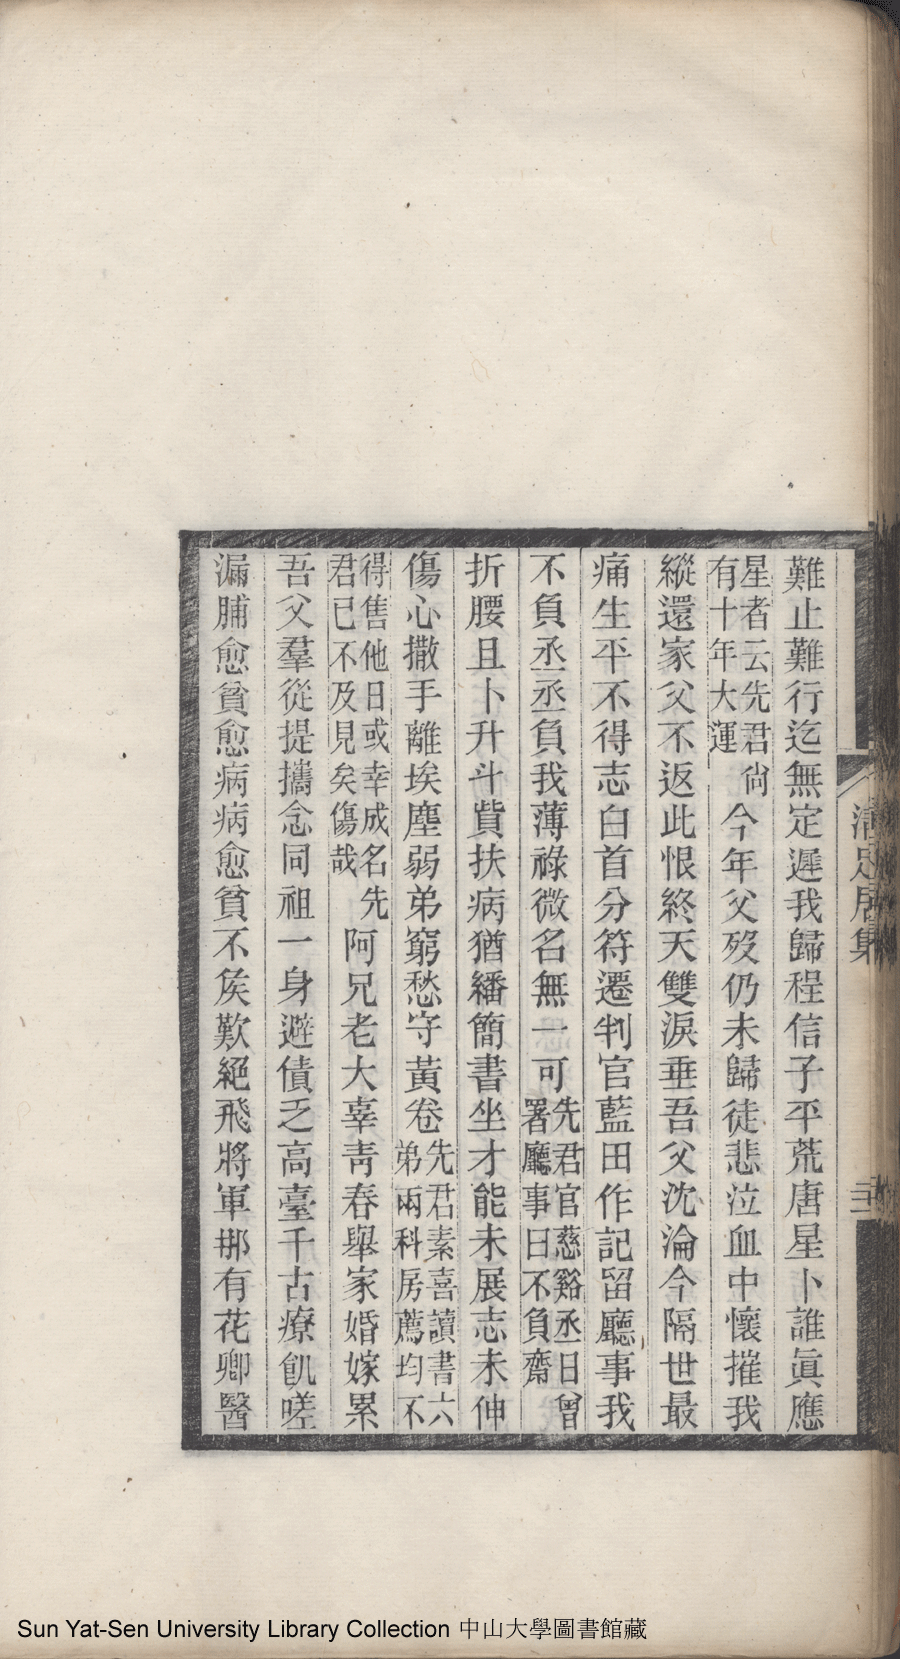 難止難行迄無定遲我歸程信子平荒唐星卜誰眞應
星者云先君尙
有十年大運
今年父歿仍未歸徒悲泣血中懷摧我
縱還家父不返此恨終天雙淚垂吾父沈淪今隔世最
痛生平不得志白首分符遷判官藍田作記留廳事我
不負丞丞負我薄祿微名無一可
先君官慈谿丞日曾
署廳事曰不負齋
折腰且卜升斗貲扶病猶繙簡書坐才能未展志未伸
傷心撒手離埃塵弱弟窮愁守黃卷
先君素喜讀書六
弟兩科房薦均不
得售他日或幸成名先
君已不及見矣傷哉
阿兄老大辜靑春舉家婚嫁累
吾父羣從提攜念同祖一身避債乏高臺千古療飢嗟
漏脯愈貧愈病病愈貧不矦歎絕飛將軍挪有花卿醫
足居集
Sun Yat-Sen University Library Collection 中山大學圖書館藏